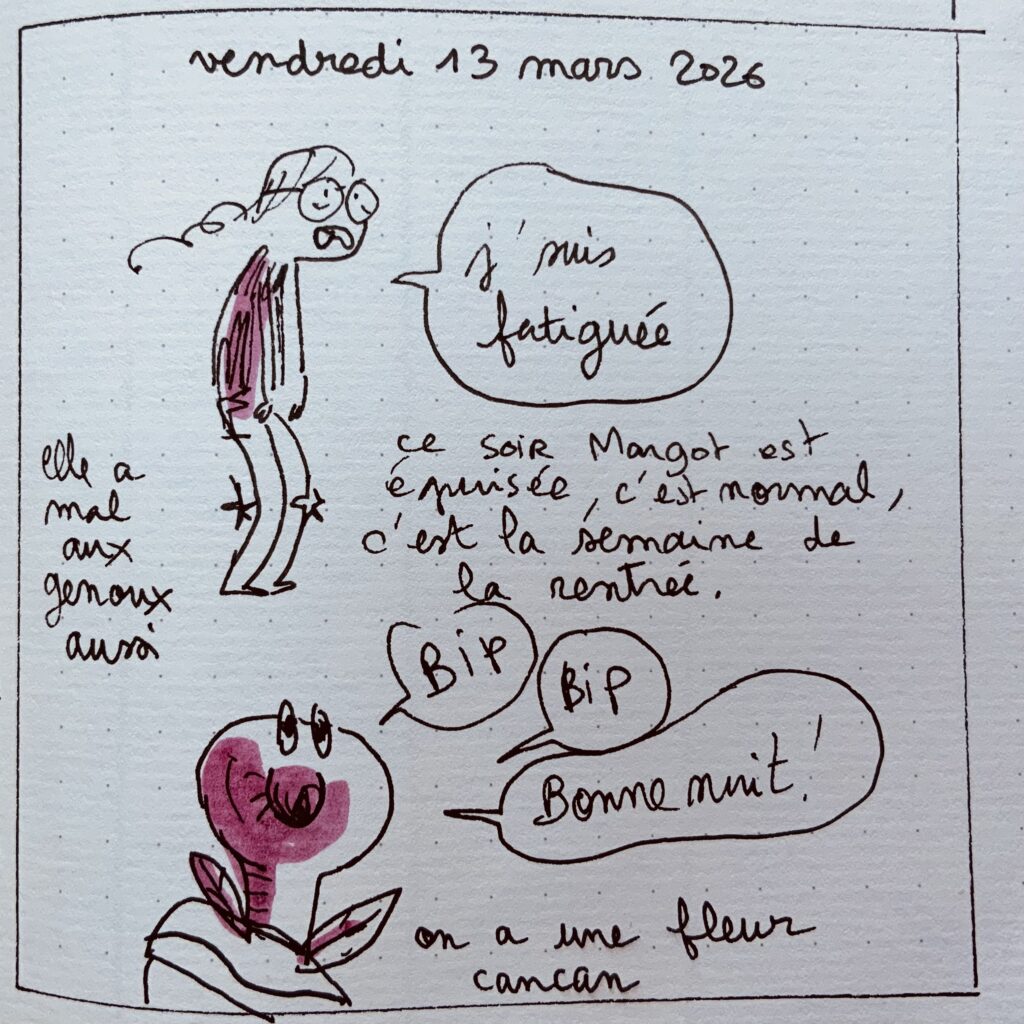 vendredi 13 mars 2026
j'suis
fatiguée
ce soir Margot est
épuisée, c'est normal,
c'est la semaine de
la rentrée.
elle a
mal
aux
genoux
aussi
Bip
Bip
Bonne nuit!
on a une fleur
cancan